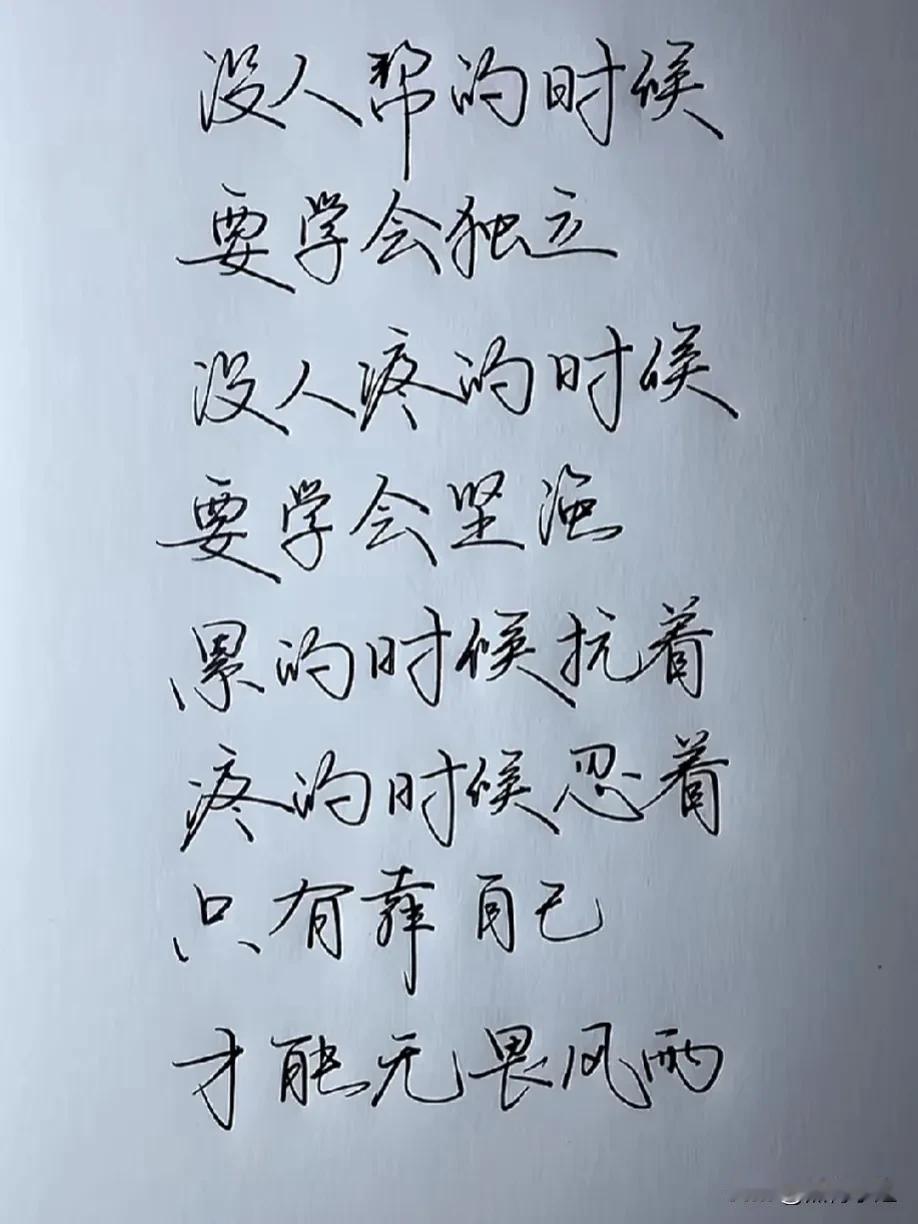 没人帮的时候
要学会独立
没人疼的时候
要学会坚强
累的时候抗着
疼的时候忍着
只有靠自己
才能无畏风雨